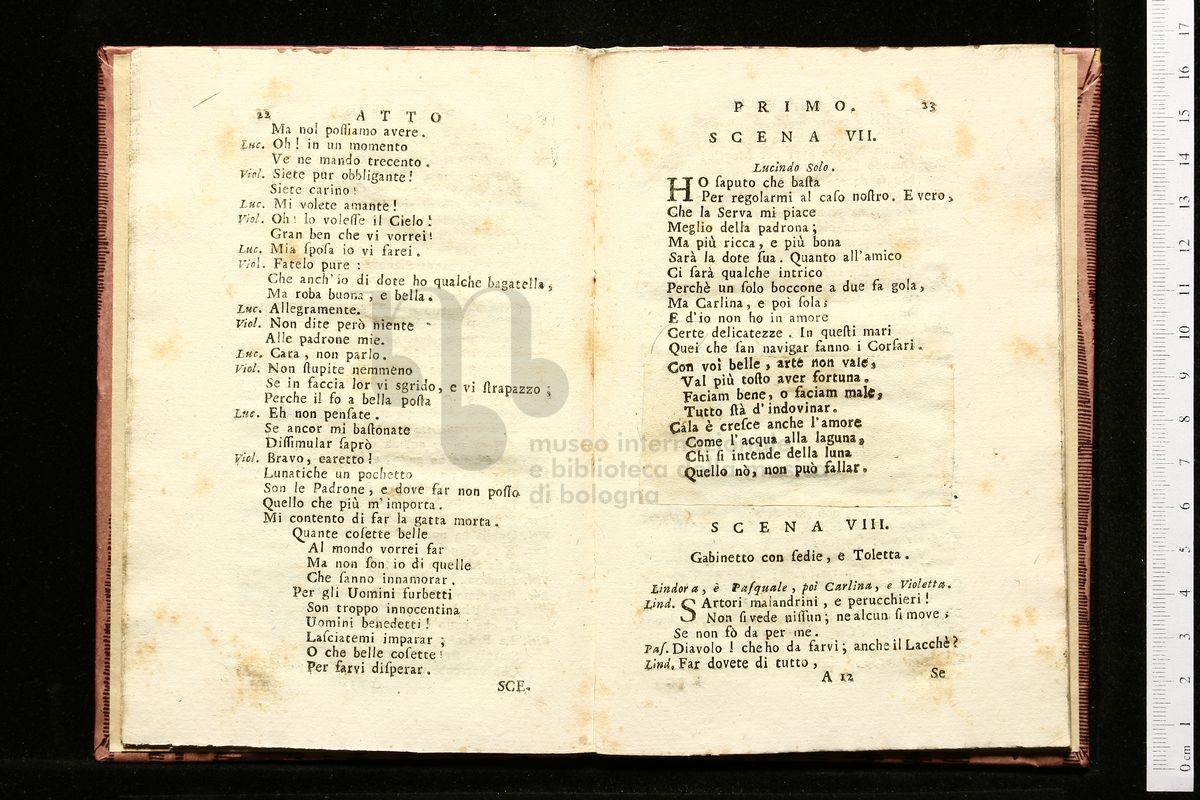 22 ATTO
Ma nol poſſiamo avere.
Luc. Oh! in un momento
Ve ne mando trecento.
Viol. Siete pur obbligante!
Siete carino!
Luc. Mi volete amante!
Viol. Oh! lo voleſſe il Cielo!
Gran ben che vi vorrei!
Luc. Mia ſpoſa io vi farei.
Viol. Fatelo pure:
Che anch'io di dote ho qualche bagatella,
Ma roba buona, e bella.
Luc. Allegramente.
Viol. Non dite però niente
Alle padrone mie.
Luc. Cara, non parlo.
Viol. Non ſtupite nemmeno
Se in faccia lor vi sgrido, e vi ſtrapazzo;
Perche il fo a bella poſta
Luc. Eh non penſate.
Se ancor mi baſtonate
Diſſimular ſaprò
Viol. Bravo, caretto!
Lunatiche un pochetto
Son le Padrone, e dove far non poſſo
Quello che più m'importa.
Mi contento di far la gatta morta.
Quante coſette belle
Al mondo vorrei far
Ma non ſon io di quelle
Che ſanno innamorar.
Per gli Uomini furbetti
Son troppo innocentina
Uomini benedetti!
Laſciatemi imparar;
O che belle coſette!
Per farvi diſperar.
SCE-
PRIMO. 23
SCENA VII.
Lucindo Solo.
HO ſaputo che baſta
Per regolarmi al caſo noſtro. E vero,
Che la Serva mi piace
Meglio della padrona;
Ma più ricca, e più bona
Sarà la dote ſua. Quanto all'amico
Ci ſarà qualche intrico
Perchè un ſolo boccone a due fa gola,
Ma Carlina, e poi ſola;
E d'io non ho in amore
Certe delicatezze. In queſti mari
Quei che ſan navigar fanno i Corſari.
Con voi belle, arte non vale,
Val più toſto aver fortuna.
Faciam bene, o faciam male,
Tutto ſtà d'indovinar.
Cala è creſce anche l'amore
Come l'acqua alla laguna,
Chi ſi intende della luna
Quello nò, non può fallar.
SCENA VIII.
Gabinetto con ſedie, e Toletta.
Lindora, è Paſquale, poi Carlina, e Violetta.
Lind. SArtori malandrini, e perucchieri!
Non ſi vede niſſun; ne alcun ſi move;
Se non fò da per me.
Paſ. Diavolo! che ho da farvi; anche il Lacchè?
Lind. Far dovete di tutto,
A 12 Se
museo
e biblioteca
di bologna
0 cm 1 2 3 4 5 6 7 8 9 10 11 12 13 14 15 16 17